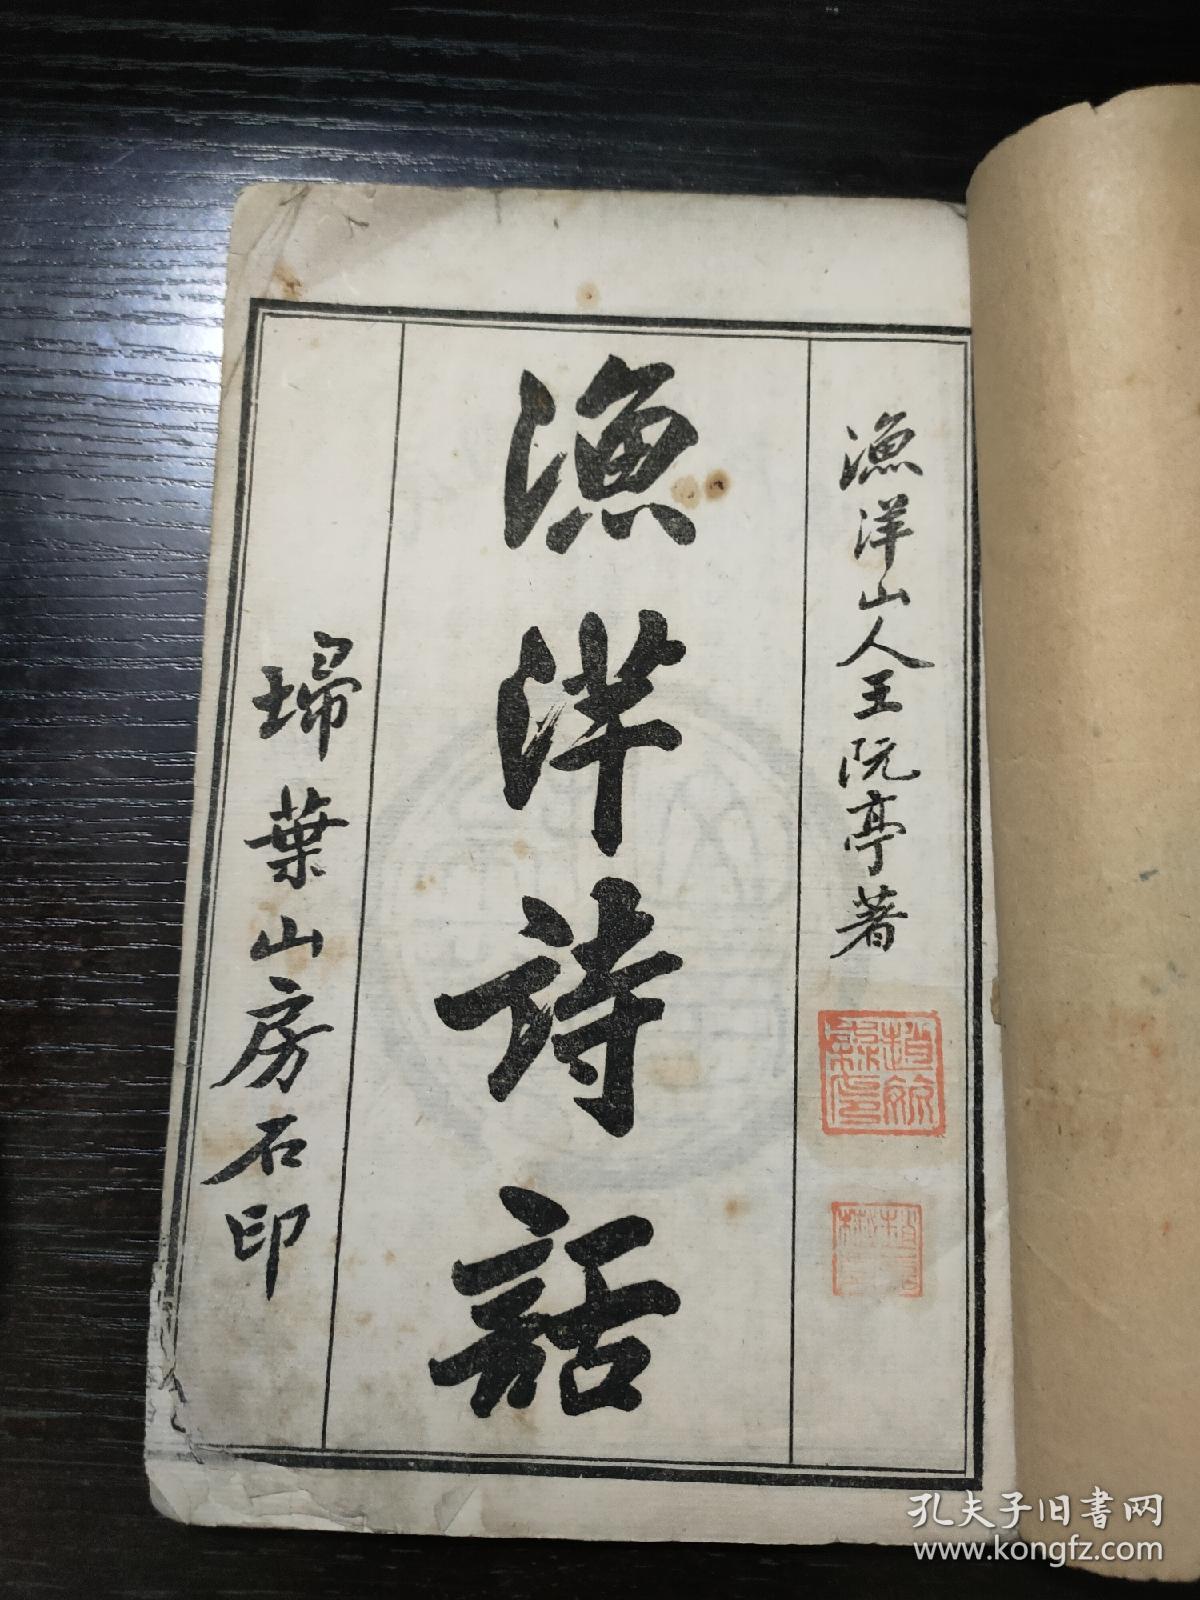 漁洋山人王阮亭著
漁洋詩話
埽葉山房石印
孔夫子旧書网
www.kongfz.com